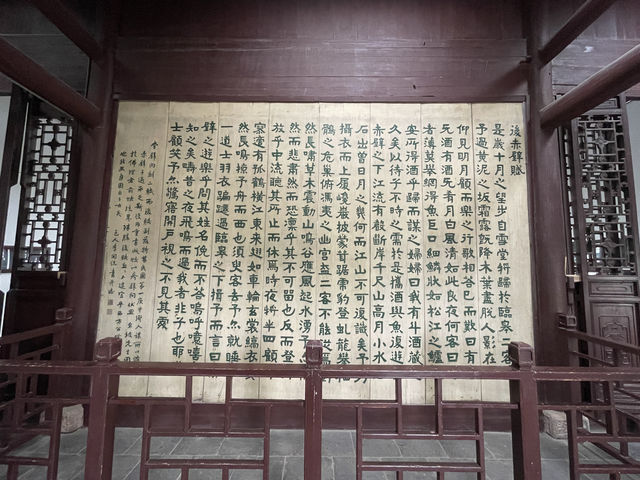 後赤壁賦
是歲十月之望步自雪堂將歸於臨皋二客
予過黃泥之坂霜露旣降木葉盡脫人影在
仰見明月顧而樂之行歌相答已而歎曰有
无酒有酒无肴月白風清如此良夜何客曰
者薄莫舉網得魚巨口細鱗狀如松江之鱸
安所得酒乎歸而謀之婦婦曰我有斗酒藏
久矣以待子不時之需於是攜酒與魚復遊
赤壁之下江流有聲斷岸千尺山高月小水
石出曾日月之幾何而江山不可復識矣予乃
攝衣而上履巉巖披蒙茸踞虎豹登虬龍攀栖
鶻之危巢俯馮夷之幽宮蓋二客不能從焉
然長嘯草木震動山鳴谷應風起水湧予
然而悲肅然而恐凜乎其不可留也反而登
放乎中流聽其所止而休焉時夜將半四顧
寥適有孤鶴橫江東來翅如車輪玄裳縞衣
然長鳴掠予舟而西也須臾客去予亦就睡
一道士羽衣蹁躚過臨皋之下揖予而言曰
壁之遊樂乎問其姓名俛而不答嗚呼噫嘻
知之矣疇昔之夜飛鳴而過我者非子也耶
士顧笑予亦驚寤開戶視之不見其處